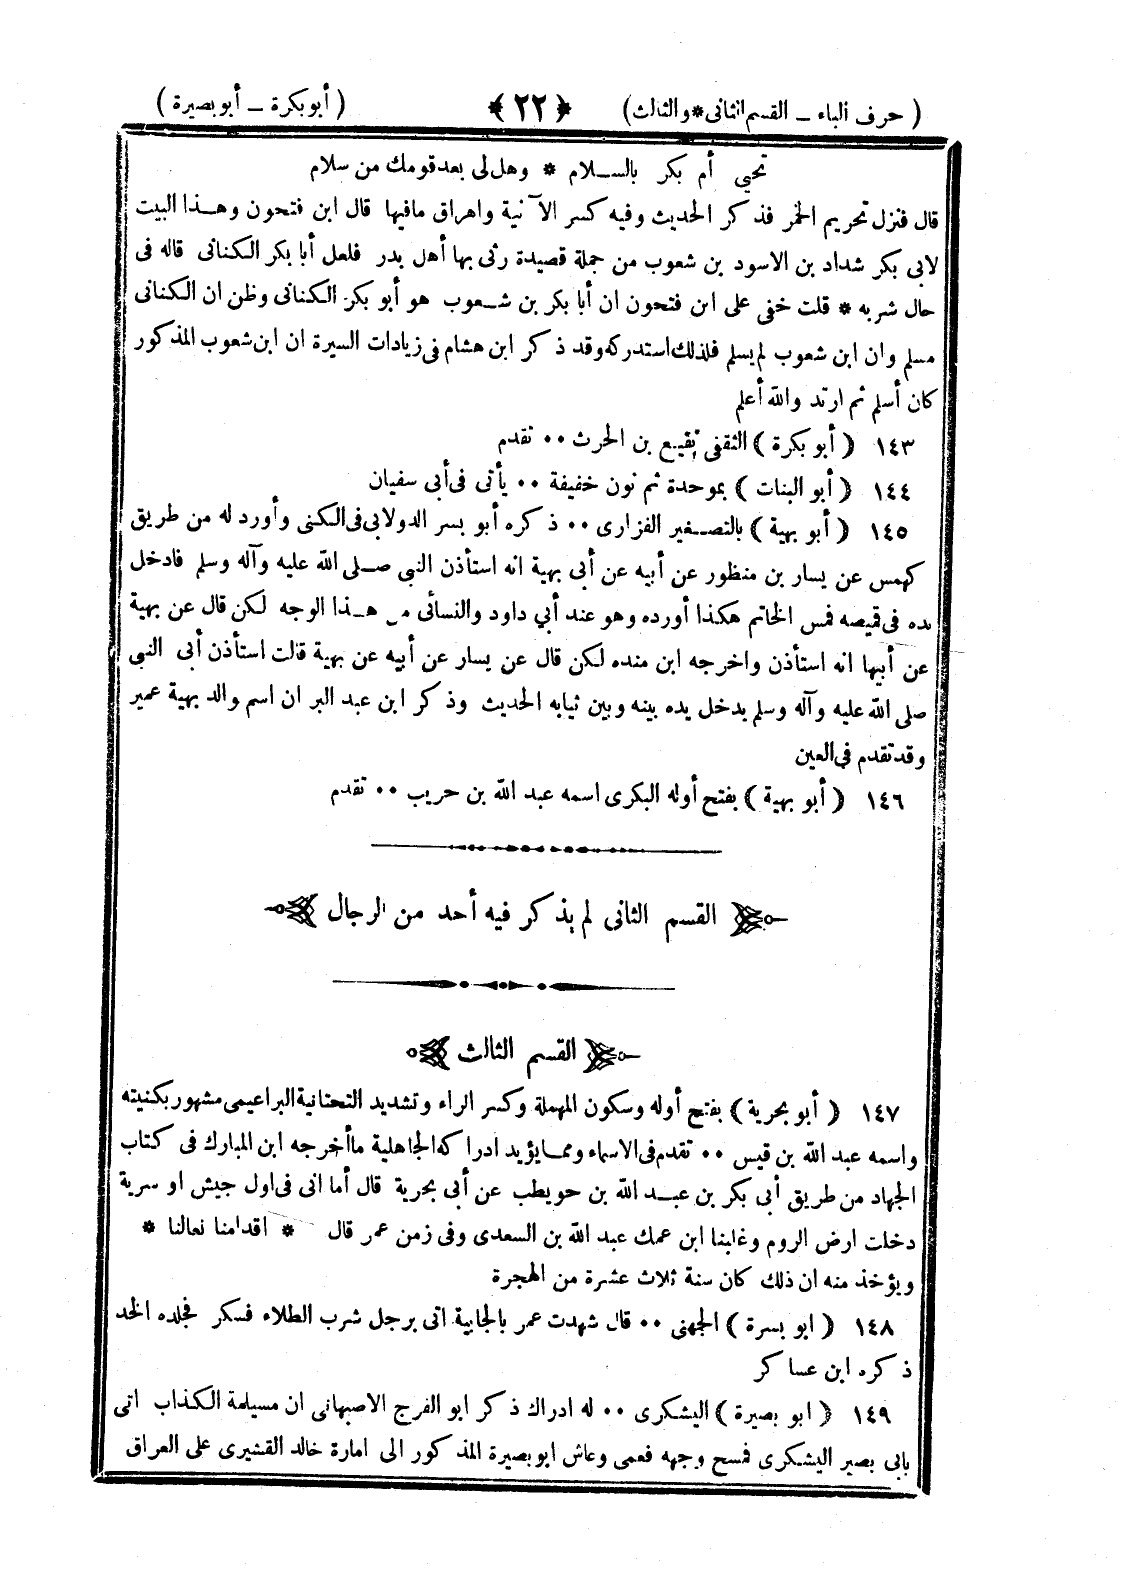 ( حرف الباء ــ القسم الثانى * والثالث ) ﴿ ٢٢ ﴾ ( أبوبكرة ــ أبوبصيرة )
تحيى أم بكر بالسلام * وهل لى بعد قومك من سلام
قال فنزل تحريم الخمر فذكر الحديث وفيه كسر الآنية واهراق مافيها قال ابن فتحون وهذا البيت
لابى بكر شداد بن الاسود بن شعوب من جملة قصيدة رثى بها أهل بدر فلعل أبا بكر الكنانى قاله فى
حال شربه * قلت خفى على ابن فتحون ان أبا بكر بن شعوب هو أبو بكر الكنانى وظن ان الكنانى
مسلم وان ابن شعوب لم يسلم فلذلك استدركه وقد ذكر ابن هشام فى زيادات السيرة ان ابن شعوب المذكور
كان أسلم ثم ارتد والله أعلم
١٤٣ ( أبو بكرة ) الثقفى نقيع بن الحرث ٠٠ تقدم
١٤٤ ( أبو البنات ) بموحدة ثم نون خفيفة ٠٠ يأتى فى أبى سفيان
١٤٥ ( أبو بهية ) بالتصغير الفزارى ٠٠ ذكره أبو بسر الدولابى فى الكنى وأورد له من طريق
كهمس عن يسار بن منظور عن أبيه عن أبى بهية انه استأذن النبى صلى الله عليه وآله وسلم فادخل
يده فى قميصه فمس الخاتم هكذا أورده وهو عند أبي داود والنسائى من هذا الوجه لكن قال عن بهية
عن أبيها انه استأذن واخرجه ابن منده لكن قال عن يسار عن أبيه عن بهية قالت استأذن أبى النبى
صلى الله عليه وآله وسلم يدخل يده بينه وبين ثيابه الحديث وذكر ابن عبد البر ان اسم والد بهية عمير
وقد تقدم في العين
١٤٦ ( أبو بهية ) بفتح أوله البكرى اسمه عبد الله بن حريب ٠٠ تقدم
القسم الثانى لم يذكر فيه أحد من الرجال
القسم الثالث
١٤٧ ( أبو بحرية ) بفتح أوله وسكون المهملة وكسر الراء وتشديد التحتانية البراعيمى مشهور بكنيته
واسمه عبد الله بن قيس ٠٠ تقدم فى الاسماء ومما يؤيد ادراكه الجاهلية ما أخرجه ابن المبارك فى كتاب
الجهاد من طريق أبى بكر بن عبد الله بن حويطب عن أبى بحرية قال أما انى فى اول جيش او سرية
دخلت ارض الروم وغابنا ابن عمك عبد الله بن السعدى وفى زمن عمر قال * اقدامنا نعالنا *
ويؤخذ منه ان ذلك كان سنة ثلاث عشرة من الهجرة
١٤٨ ( ابو بسرة ) الجهنى ٠٠ قال شهدت عمر بالجابية اتى برجل شرب الطلاء فسكر فجلده الحد
ذكره ابن عساكر
١٤٩ ( ابو بصيرة ) اليشكرى ٠٠ له ادراك ذكر ابو الفرج الاصبهانى ان مسيلمة الكذاب اتى
بابى بصير اليشكرى فمسح وجهه فعمى وعاش ابوبصيرة المذكور الى امارة خالد القشيرى على العراق